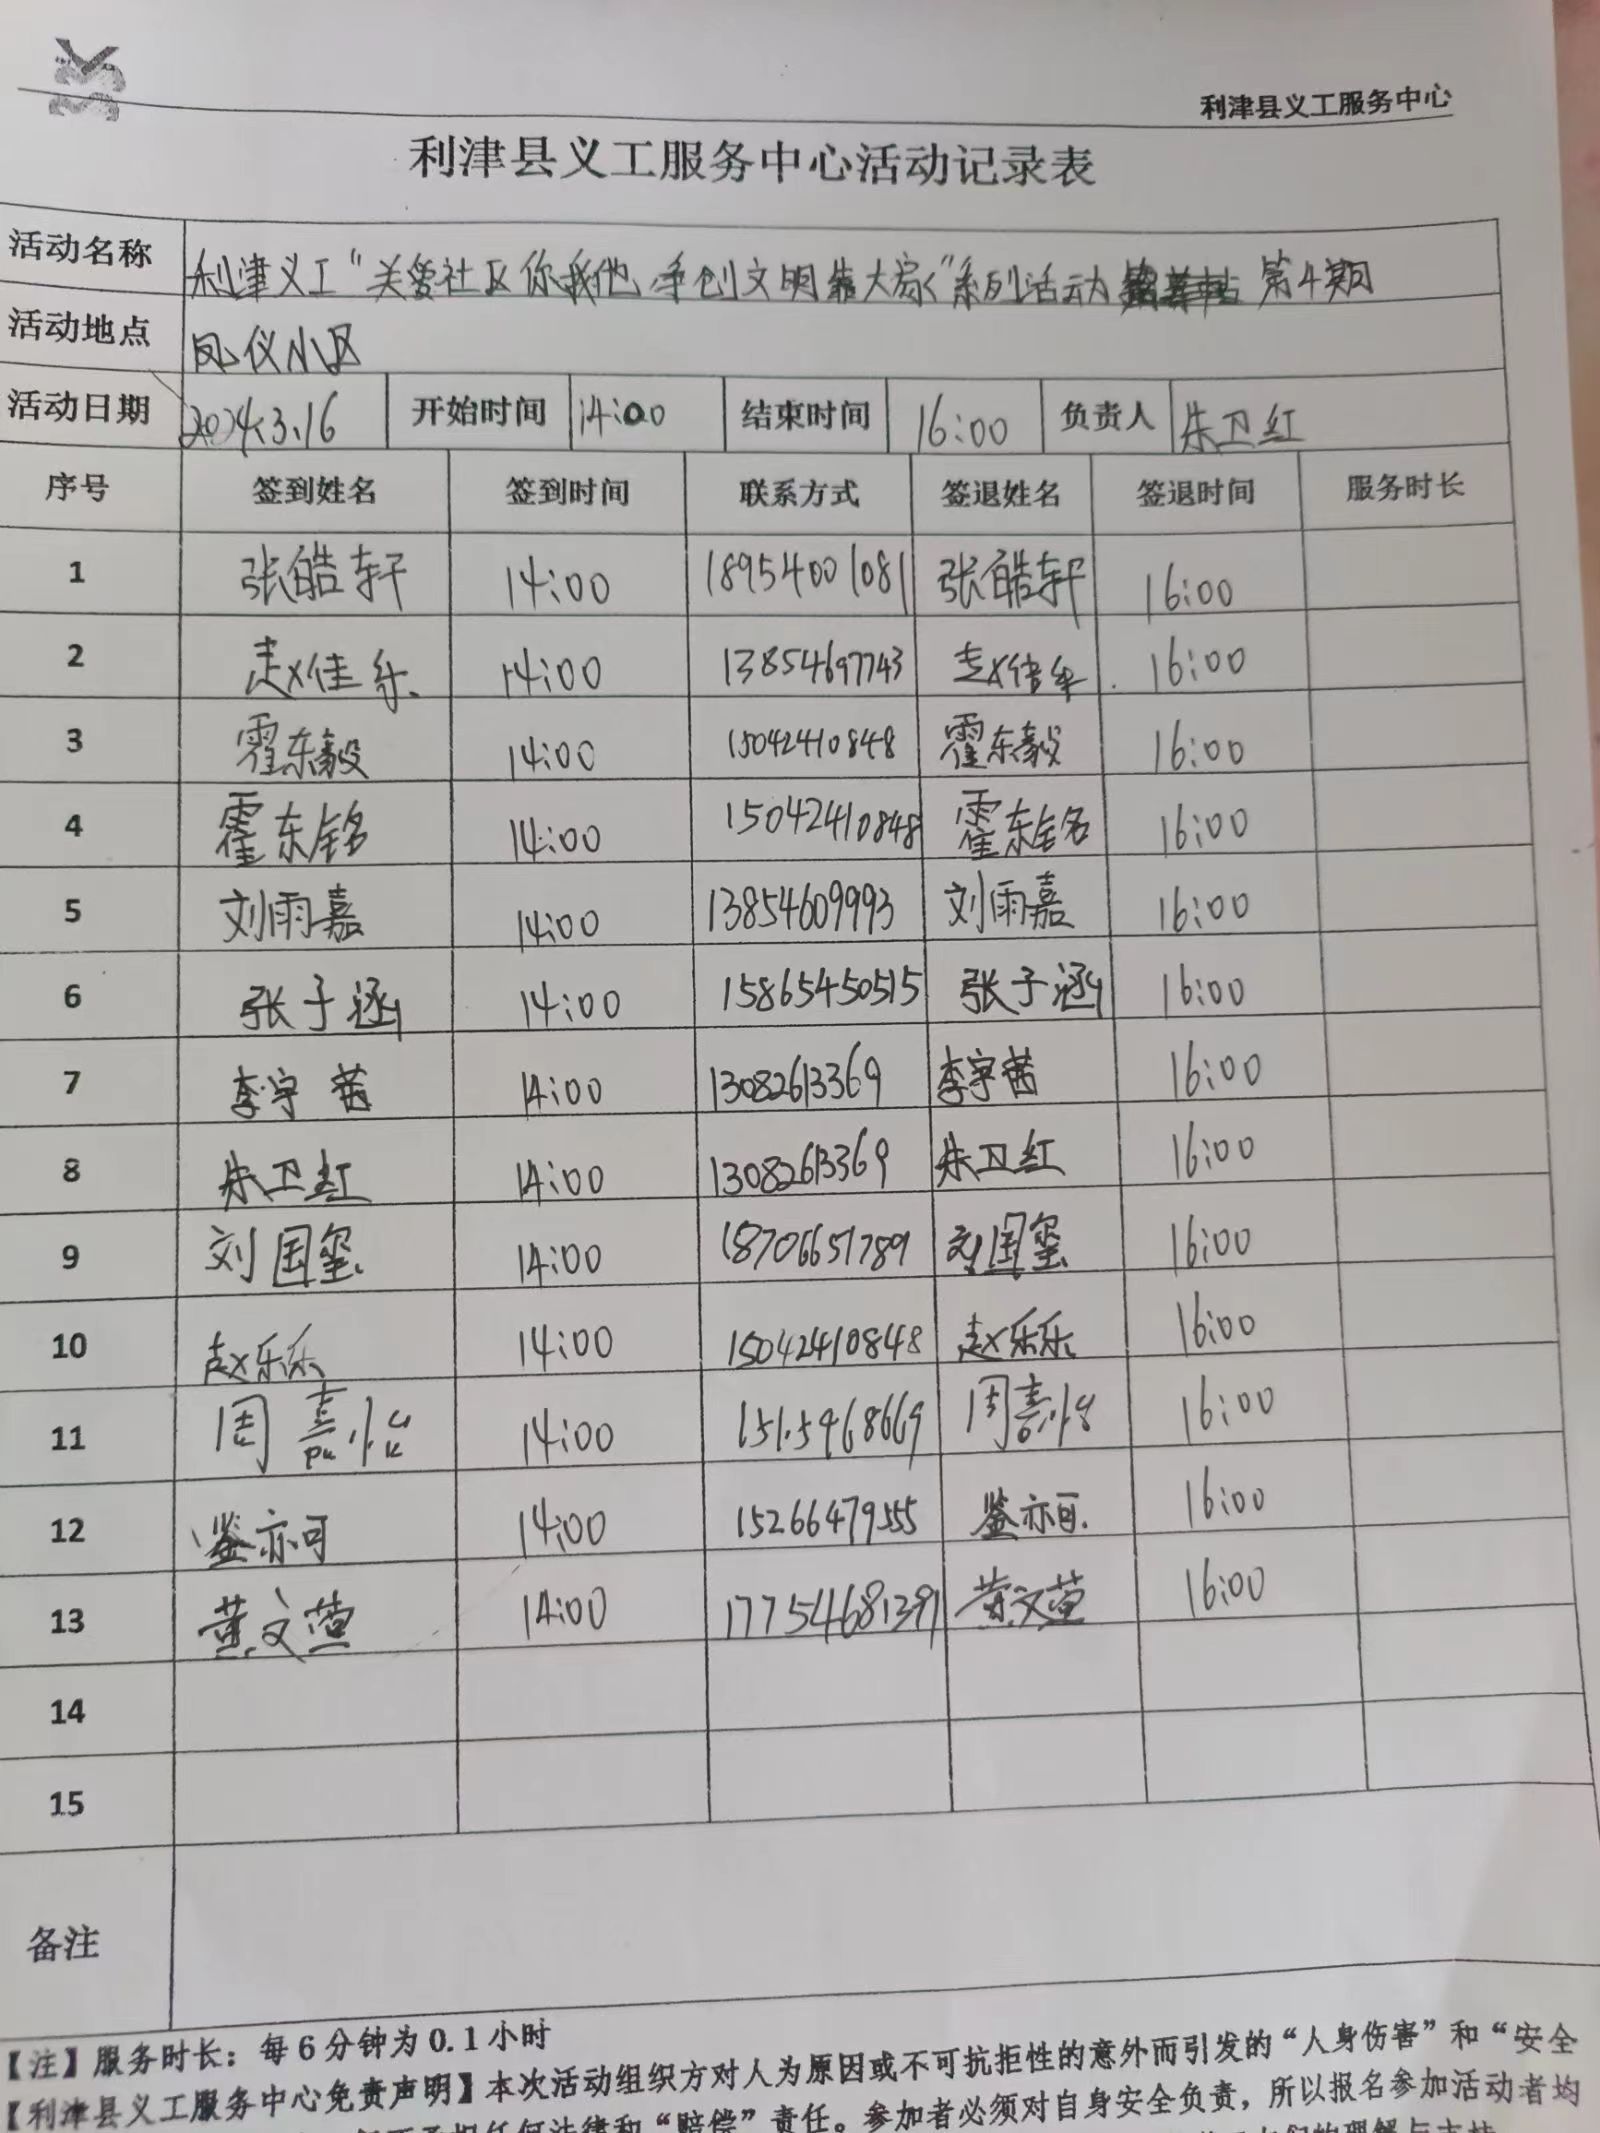 利津县义工服务中心
利津县义工服务中心活动记录表
活动名称 利津义工“关爱社区你我他,争创文明靠大家”系列活动 第4期
活动地点 凤仪小区
活动日期 2024.3.16 开始时间 14:00 结束时间 16:00 负责人 朱卫红
序号 签到姓名 签到时间 联系方式 签退姓名 签退时间 服务时长
1 张皓轩 14:00 18954001081 张皓轩 16:00
2 赵佳乐 14:00 13854697743 赵佳乐 16:00
3 霍东毅 14:00 15042410848 霍东毅 16:00
4 霍东铭 14:00 15042410848 霍东铭 16:00
5 刘雨嘉 14:00 13854609993 刘雨嘉 16:00
6 张子涵 14:00 15865450515 张子涵 16:00
7 李宇茜 14:00 13082613369 李宇茜 16:00
8 朱卫红 14:00 13082613369 朱卫红 16:00
9 刘国玺 14:00 18706651789 刘国玺 16:00
10 赵乐乐 14:00 15042410848 赵乐乐 16:00
11 周嘉怡 14:00 15159468669 周嘉怡 16:00
12 亦可 14:00 15266479555 亦可 16:00
13 黄文萱 14:00 17754681391 黄文萱 16:00
14
15
备注
【注】服务时长：每6分钟为0.1小时
【利津县义工服务中心免责声明】本次活动组织方对人为原因或不可抗拒性的意外而引发的“人身伤害”和“安全
任何法律和“赔偿”责任。参加者必须对自身安全负责，所以报名参加活动者均
们的理解与支持